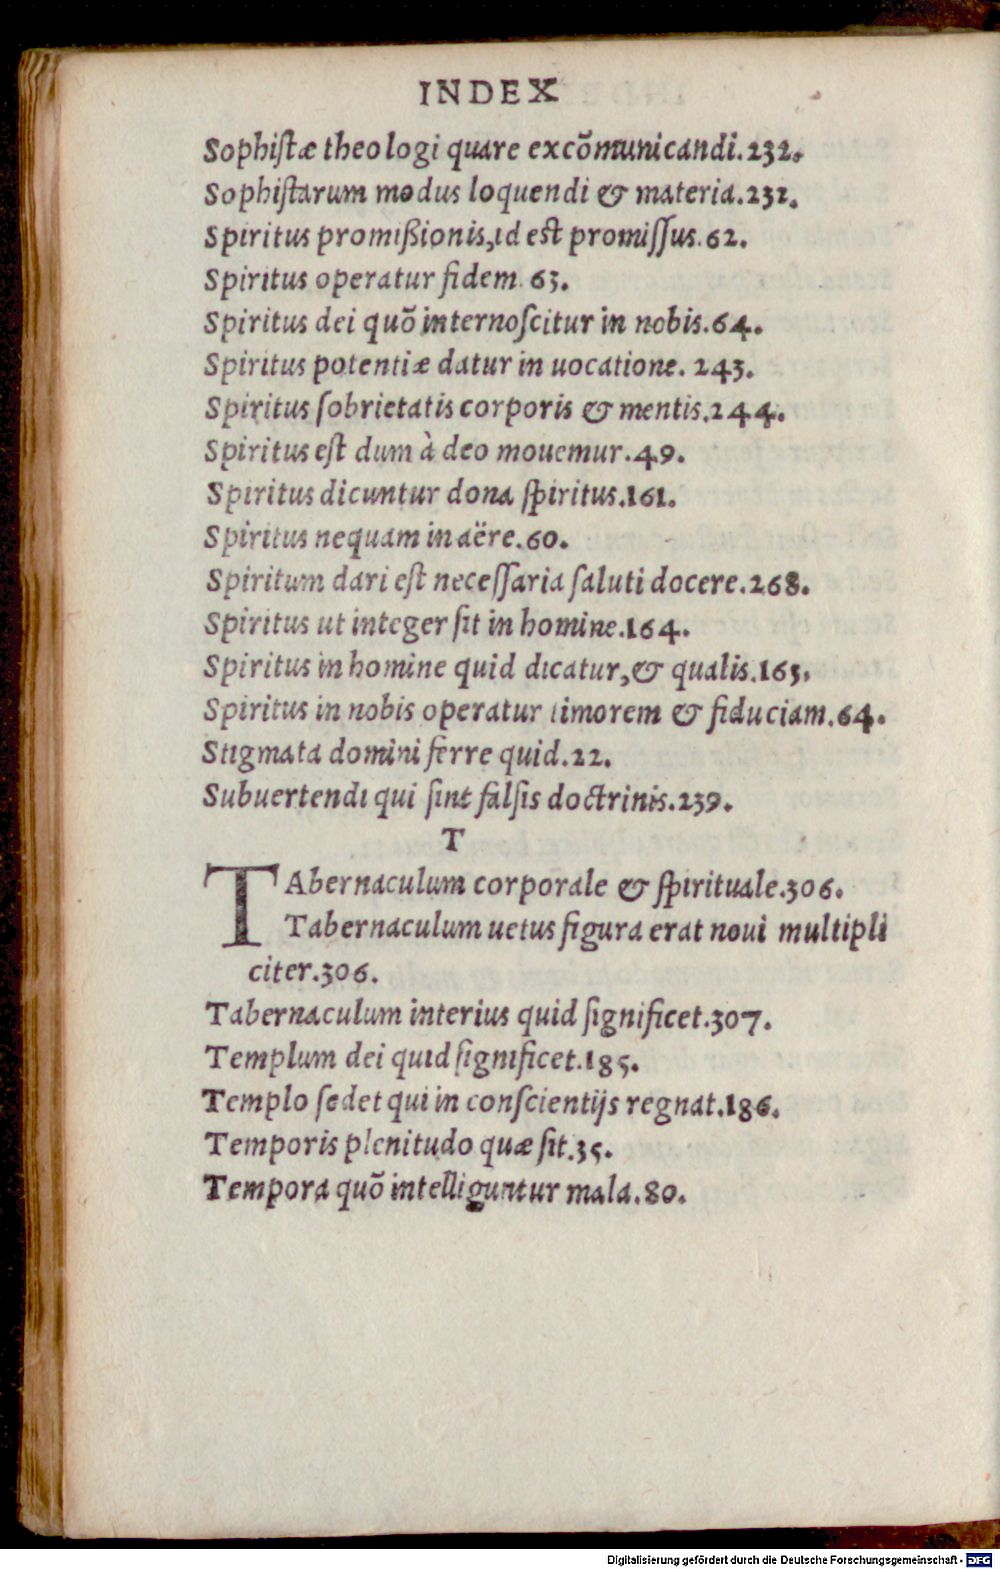 INDEX
Sophistæ theologi quare excõmunicandi.232.
Sophistarum modus loquendi & materia.232.
Spiritus promißionis,id est promissus.62.
Spiritus operatur fidem 63.
Spiritus dei quõ internoscitur in nobis.64.
Spiritus potentiæ datur in uocatione. 243.
Spiritus sobrietatis corporis & mentis.244.
Spiritus est dum à deo mouemur.49.
Spiritus dicuntur dona spiritus.161.
Spiritus nequam in aëre.60.
Spiritum dari est necessaria saluti docere.268.
Spiritus ut integer sit in homine.164.
Spiritus in homine quid dicatur,& qualis.163.
Spiritus in nobis operatur timorem & fiduciam.64.
Stigmata domini ferre quid.22.
Subuertendi qui sint falsis doctrinis.239.
T
TAbernaculum corporale & spirituale.306.
Tabernaculum uetus figura erat noui multipli
citer.306.
Tabernaculum interius quid significet.307.
Templum dei quid significet.185.
Templo sedet qui in conscientijs regnat.186.
Temporis plenitudo quæ sit.35.
Tempora quõ intelliguntur mala.80.
Digitalisierung gefördert durch die Deutsche Forschungsgemeinschaft - DFG